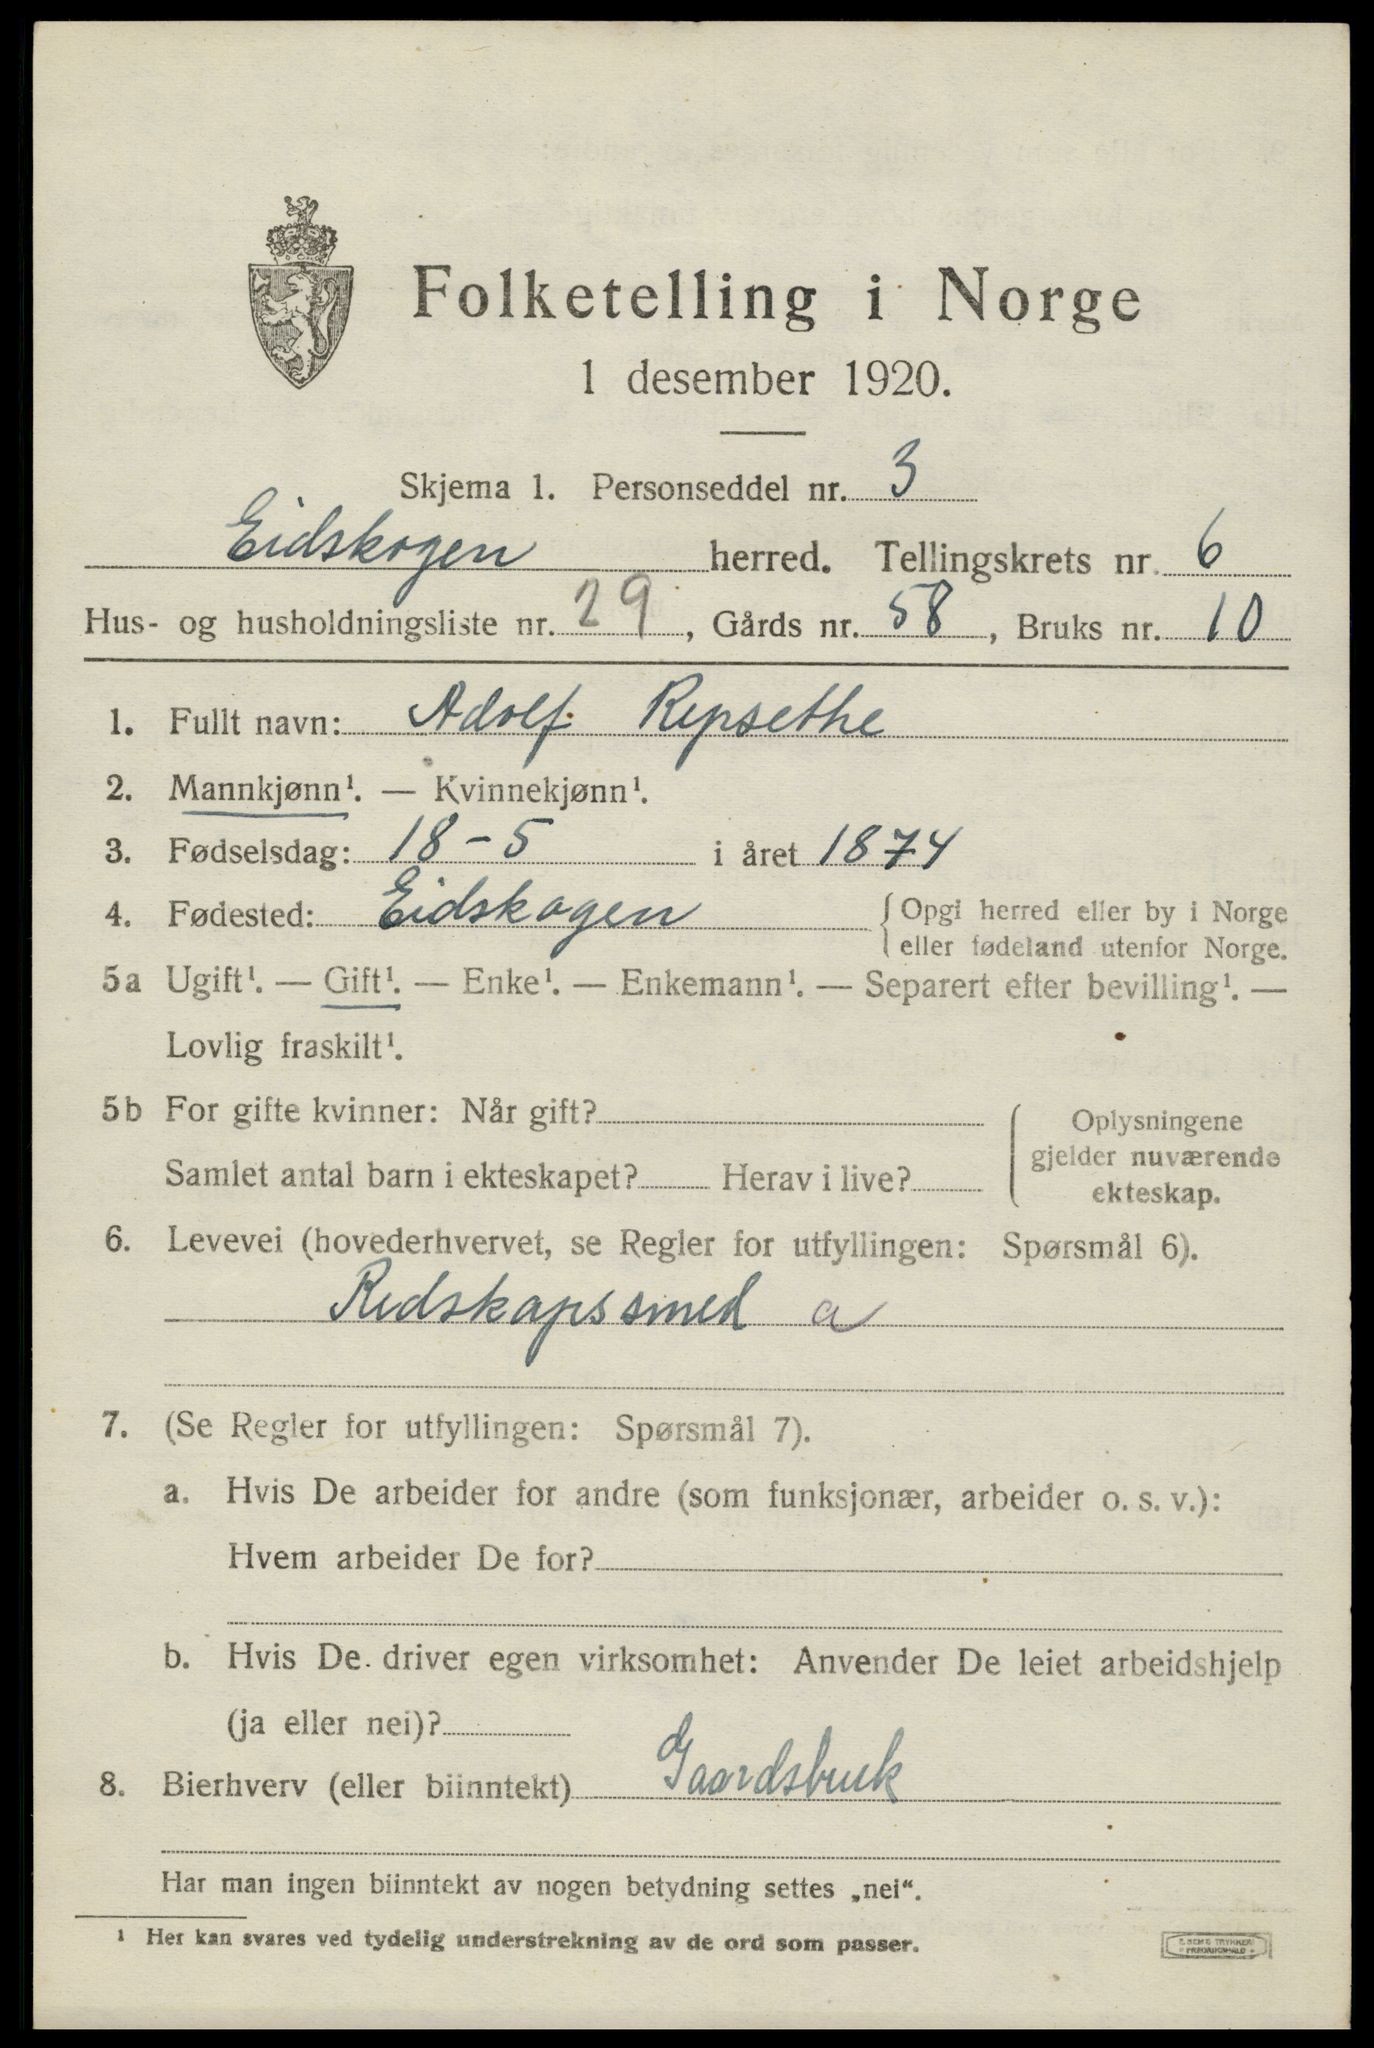 Folketelling i Norge
1 desember 1920.
Skjema 1. Personseddel nr. 3
Eidskogen herred. Tellingskrets nr. 6
Hus- og husholdningsliste nr. 29, Gårds nr. 58, Bruks nr. 10
1. Fullt navn: Adolf Repsethe
2. Mannkjønn¹. — Kvinnekjønn¹.
3. Fødselsdag: 18-5 i året 1874
4. Fødested: Eidskogen { Opgi herred eller by i Norge
eller fødeland utenfor Norge.
5a Ugift¹. — Gift¹. — Enke¹. — Enkemann¹. — Separert efter bevilling¹. —
Lovlig fraskilt¹.
5b For gifte kvinner: Når gift?
Samlet antal barn i ekteskapet? Herav i live?
Oplysningene
gjelder nuværende
ekteskap.
6. Levevei (hovederhvervet, se Regler for utfyllingen: Spørsmål 6).
Redskapssmed a
7. (Se Regler for utfyllingen: Spørsmål 7).
a. Hvis De arbeider for andre (som funksjonær, arbeider o. s. v.):
Hvem arbeider De for?
b. Hvis De driver egen virksomhet: Anvender De leiet arbeidshjelp
(ja eller nei)?
8. Bierhverv (eller biinntekt) Gaardsbruk
Har man ingen biinntekt av nogen betydning settes „nei“.
¹ Her kan svares ved tydelig understrekning av de ord som passer.